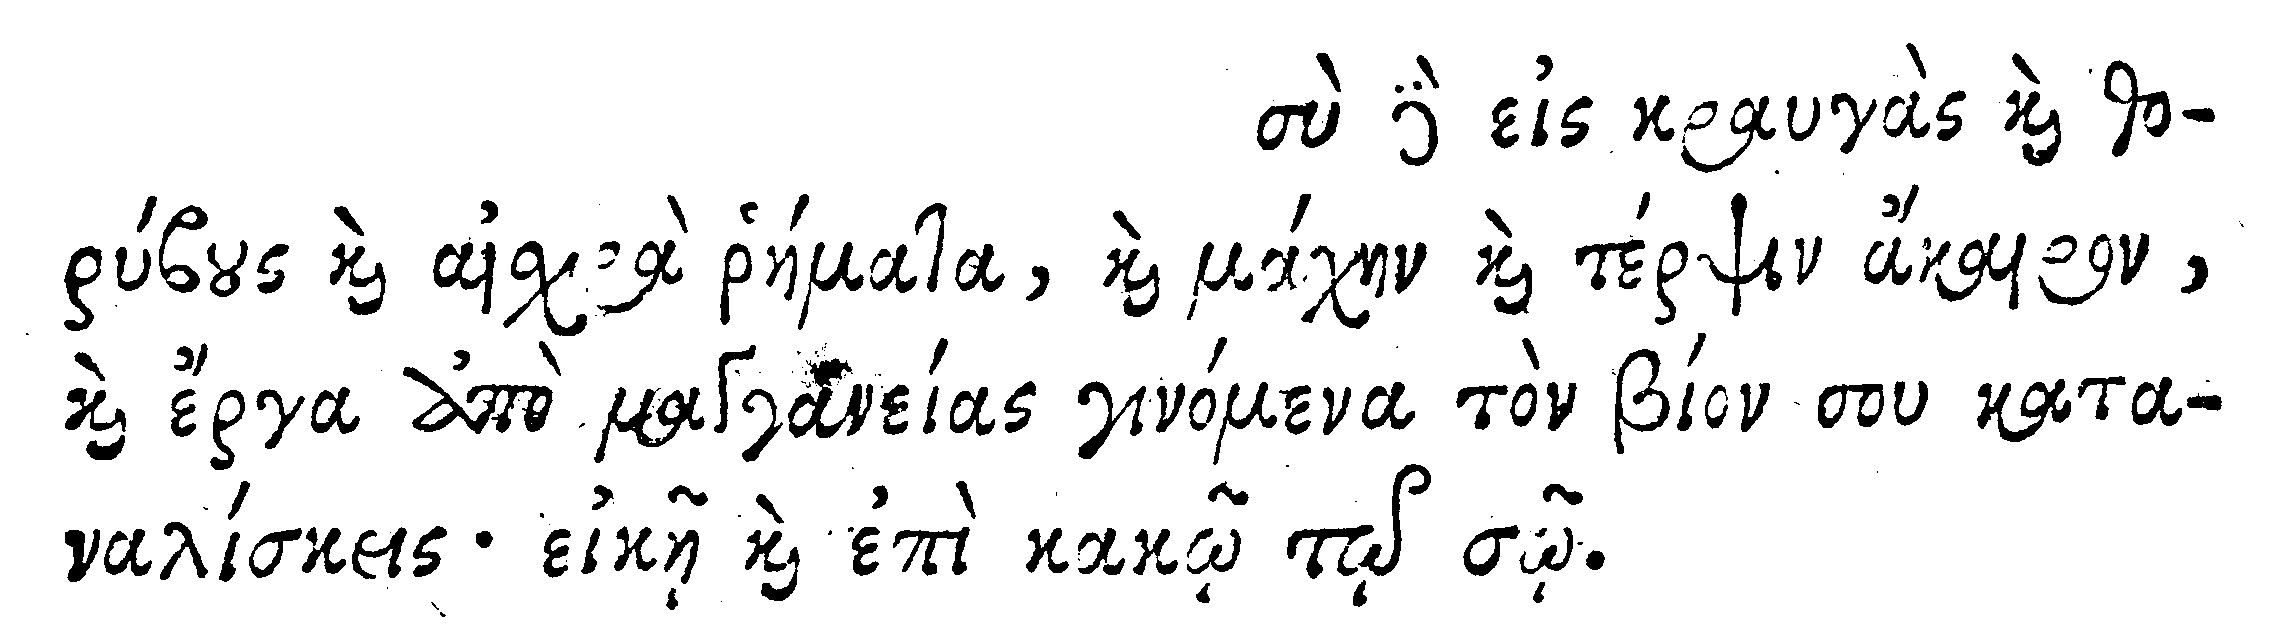 σὺ δὲ εἰς κραυγὰς καὶ θο-
ρύβους καὶ αἰσχρὰ ῥήματα, καὶ μάχην καὶ τέρψιν ἄκαιρον,
καὶ ἔργα ἀπὸ μαγγανείας γινόμενα τὸν βίον σου κατα-
ναλίσκεις· εἰκῇ καὶ ἐπὶ κακῷ τῷ σῷ.